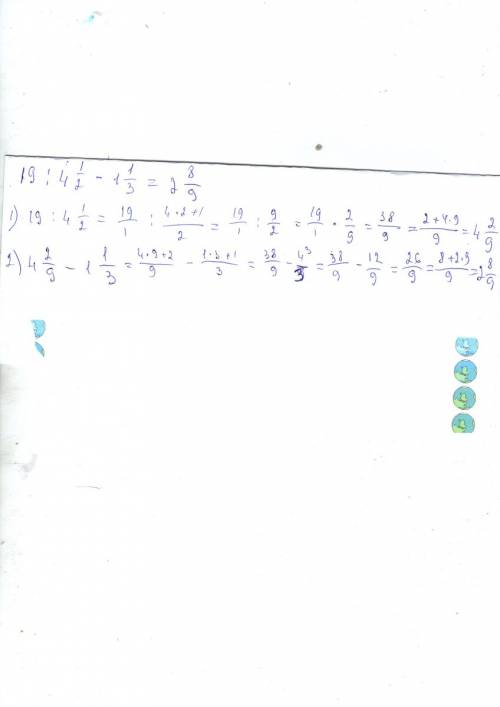 19 : 4 1/2 - 1 1/3 = 2 8/9
1) 19 : 4 1/2 = 19/1 : (4·2+1)/2 = 19/1 : 9/2 = 19/1 · 2/9 = 38/9 = (2+4·9)/9 = 4 2/9
2) 4 2/9 - 1 1/3 = (4·9+2)/9 - (1·3+1)/3 = 38/9 - 4^3/3 = 38/9 - 12/9 = 26/9 = (8+2·9)/9 = 2 8/9